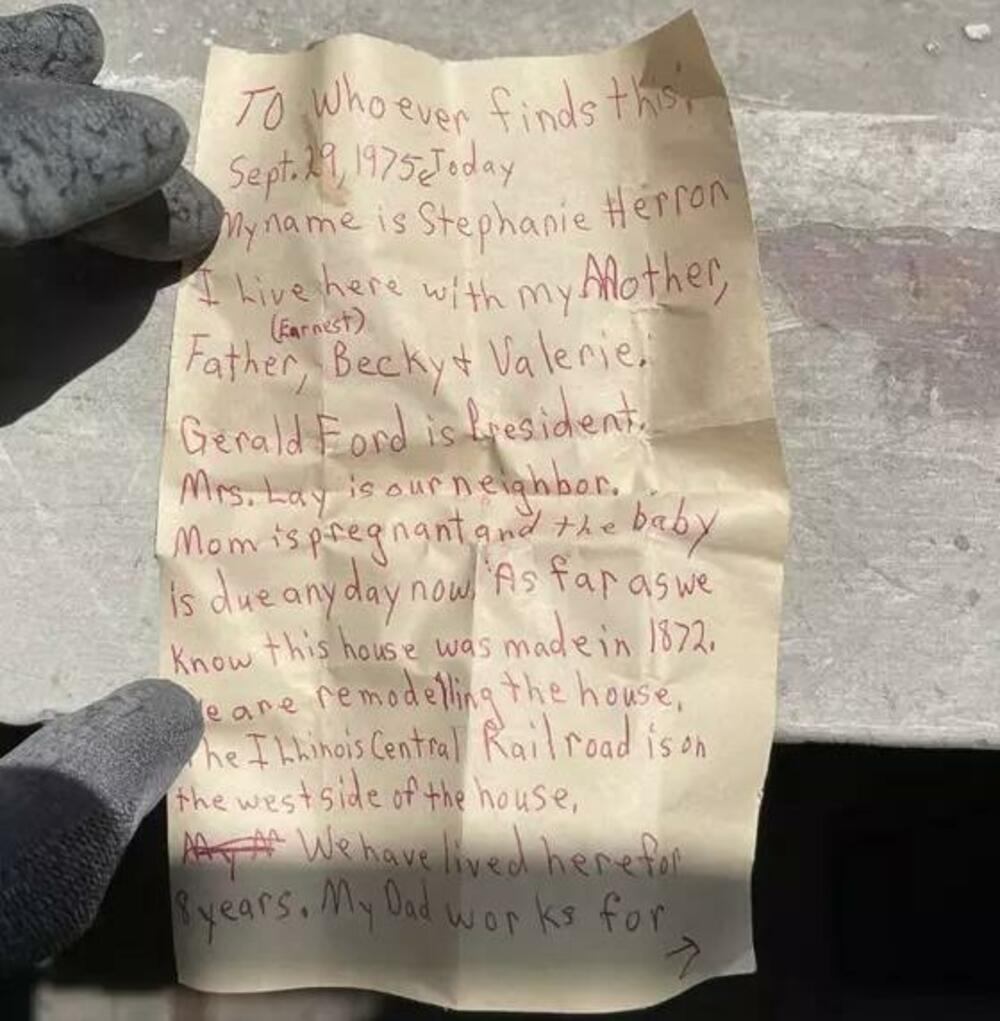 TO Whoever finds this,
Sept. 29, 1975, Today
My name is Stephanie Herron
I Live here with my Mother,
(Earnest)
Father, Becky + Valerie.
Gerald Ford is President.
Mrs. Lay is our neighbor.
Mom is pregnant and the baby
is due any day now. As far as we
know this house was made in 1872.
We are remodelling the house.
The ILLinois Central Railroad is on
the west side of the house.
We have lived here for
8 years. My Dad works for
→